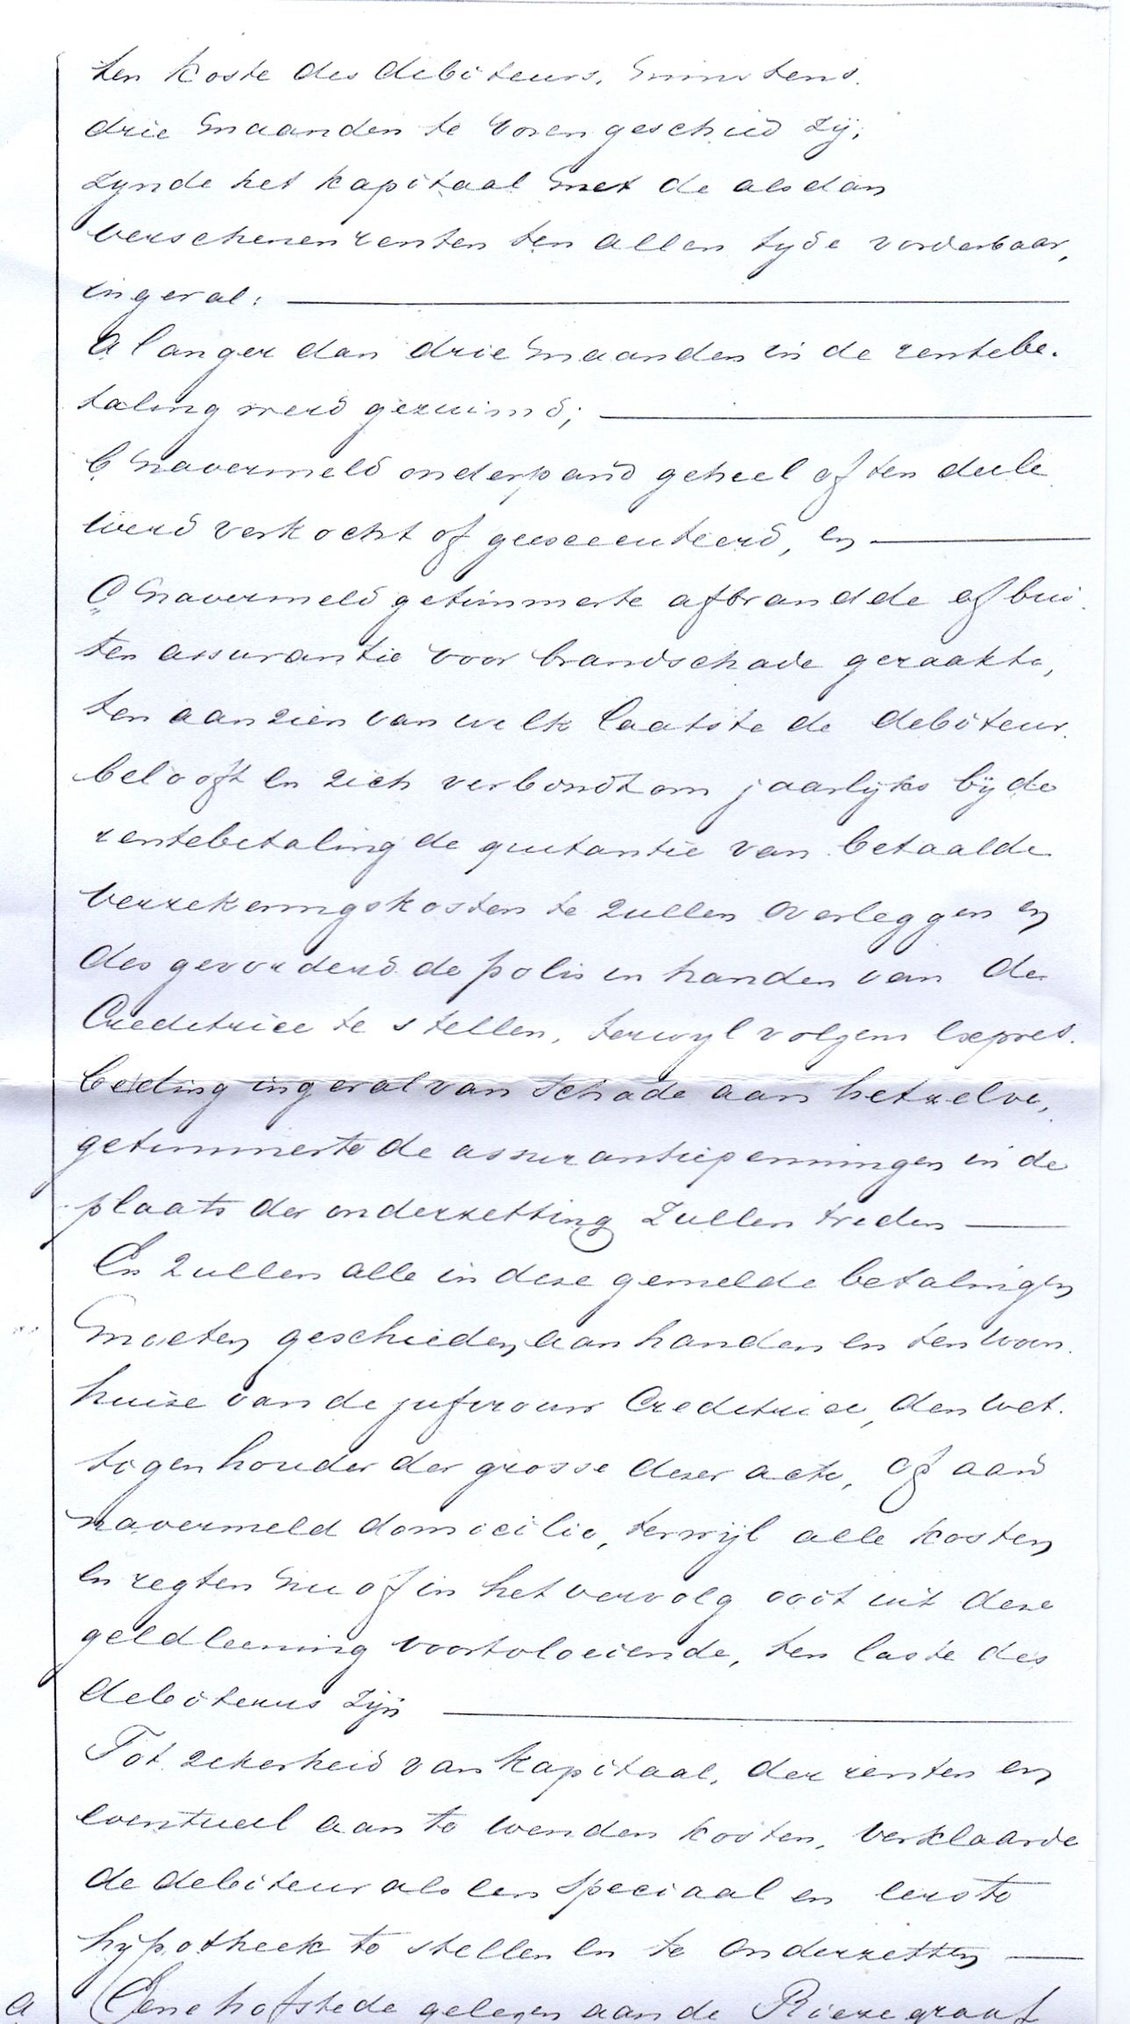 ten koste des debiteurs, minstens
drie maanden te voren geschied zij,
zynde het kapitaal met de alsdan
verschenen renten ten allen tyde vorderbaar,
ingeval:
a langer dan drie maanden in de rentebe-
taling werd gezuimd;
b navermeld onderpand geheel of ten deele
werd verkocht of geexecuteerd, en
c navermeld getimmerte afbrandde of bui-
ten assurantie voor brandschade geraakte,
ten aanzien van welk laatste de debiteur
belooft en zich verbondt om jaarlyks by de
rentebetaling de quitantie van betaalde
verzekeringskosten te zullen overleggen en
des gevorderd de polis in handen van de
Creditrice te stellen, terwyl volgens expres
beding ingeval van schade aan hetzelve,
getimmerte de assurantiepenningen in de
plaats der onderzetting zullen treden
En zullen alle in deze gemelde betalingen
moeten geschieden, aan handen en ten woon
huize van de jufvrouw Creditrice, den wet-
tigen houder der grosse dezer acte, of aan
navermeld domicilie, terwijl alle kosten
en regten nu of in het vervolg ooit uit deze
geldleening voortvloeiende, ten laste des
debiteurs zijn
Tot zekerheid van kapitaal, der renten en
eventueel aan te wenden kosten, verklaarde
de debiteur als een speciaal en eerste
hypotheek te stellen en te onderzetten
a Eene hofstede gelegen aan de